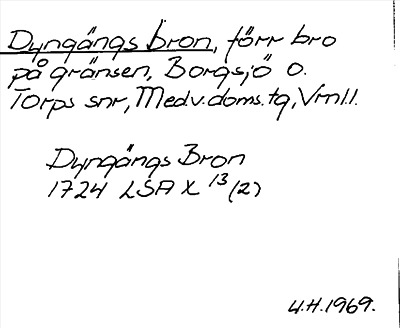 Dyngängs bron, förr bro
på gränsen, Borgsjö o.
Torps snr, Med.v.doms.tg, Vrnl.l.
Dyngängs Bron
1724 LSA X 13 (2)
U.H. 1969.